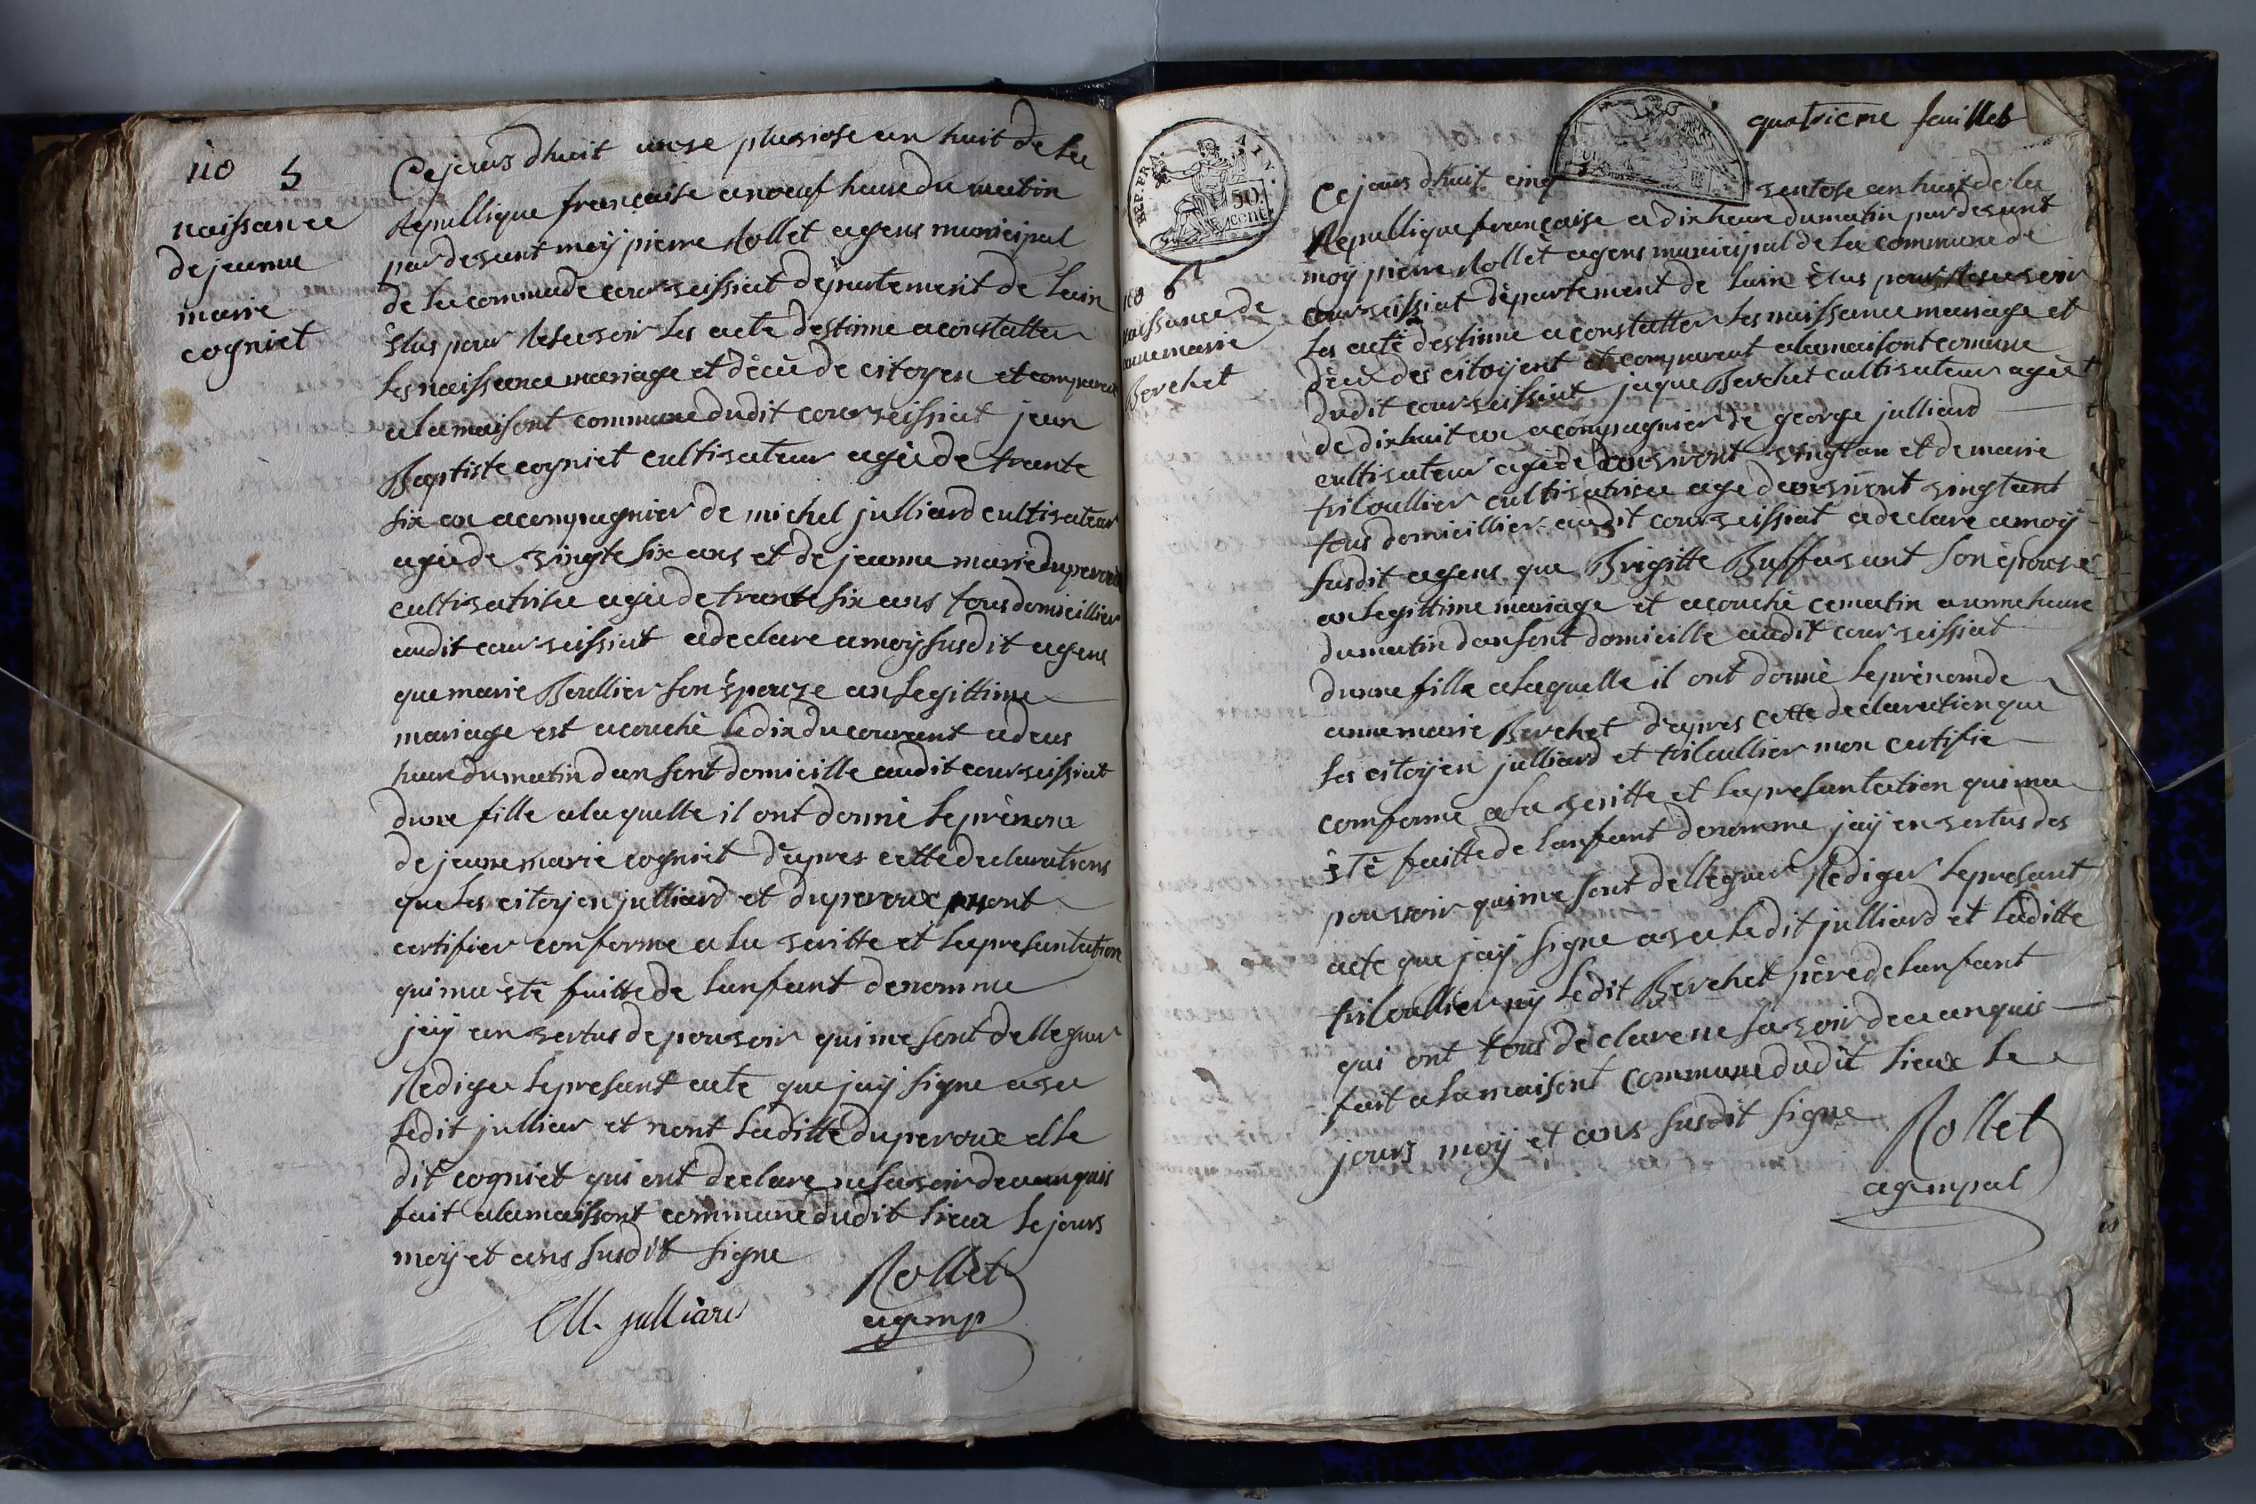 no 5
naissance
de jeanne
marie
cogniet
Cejours dhuit unse pluviose an huit de la
Republlique francaise a noeuf heure du matin
pardevant moy pierre Rollet agens municipal
de la commude courveissiat département de lain
élus pour Resevoir les acte destinne a constatter
les naissance mariage et décü de citoyen et comparent
a la maisont commune dudit courveissiat jean
Baptiste cogniet cultivateur agéé de trante
six an acompagnier de michel julliard cultivateur
agéé de vingte six ans et de jeanne marie duperoux
cultivatrise agéé de trante six ans tous domicillier
audit courveissiat a declare a moy susdit agens
que marie Boullier son épouze an legittime
mariage est acouché le dix du courent a deus
heure du matin dan sont domicille audit courveissiat
dune fille a laquelle il ont donné le prénom
de jeanne marie cogniet daprés cette declarations
que les citoyen julliard et duperoux mont
certifier conforme a la veritte et la presantation
qui ma été faitte de lanfant denomme
jay an vertus de pouvoir qui me sont dellegner
Rediger le presant acte que jay signe avec
ledit julliar et nont laditte duperoux et le
dit cogniet qui ont declare ne savoir de ce anquis
fait a la maissont commune dudit lieux le jours
moy et ans susdit signe
Rollet
agmp
M. julliard
quatrieme feuillet
REP. FRA.
AIN.
50
cent
no 6
naissance de
anne marie
Berchet
Cejours dhuit cinq ventose an huit de la
Republlique francaise a dix heure du matin pardevant
moy pierre Rollet agens municipal de la commune de
courveissiat département de lain élus pour Resevoir
les acte destinne a constatter les naissance mariage et
décü des citoyent et comparent a la maisont comune
dudit courveissiat jaque Berchet cultivateur agéé
de dixhuit an acompagnier de george julliard
cultivateur agéé de anviront vingt an et de marie
triloullier cultivatrise age de anviront vingt ant
tous domicillier audit courveissiat a declare a moy
susdit agens que Brigitte Buffavant son épouse
an legittime mariage et acouché ce matin a unne heure
du matin dan sont domicille audit courveissiat
dunne fille a laquelle il ont donné le prénom de
anne marie Berchet d'apres cette declaration que
les citoyen julliard et triloullier mon certifie
comforme a la veritte et la presantation qui ma
été faitte de lanfant denomme jay en vertus des
pouvoir qui me sont delleguer Rediger le presant
acte que jay signe avec ledit julliard et laditte
triloullier ny ledit Berchet pére de lanfant
qui ont tous déclare ne savoir de ce anquis
fait a la maisont commune dudit lieux le
jours moy et ans susdit signe
Rollet
agmpal